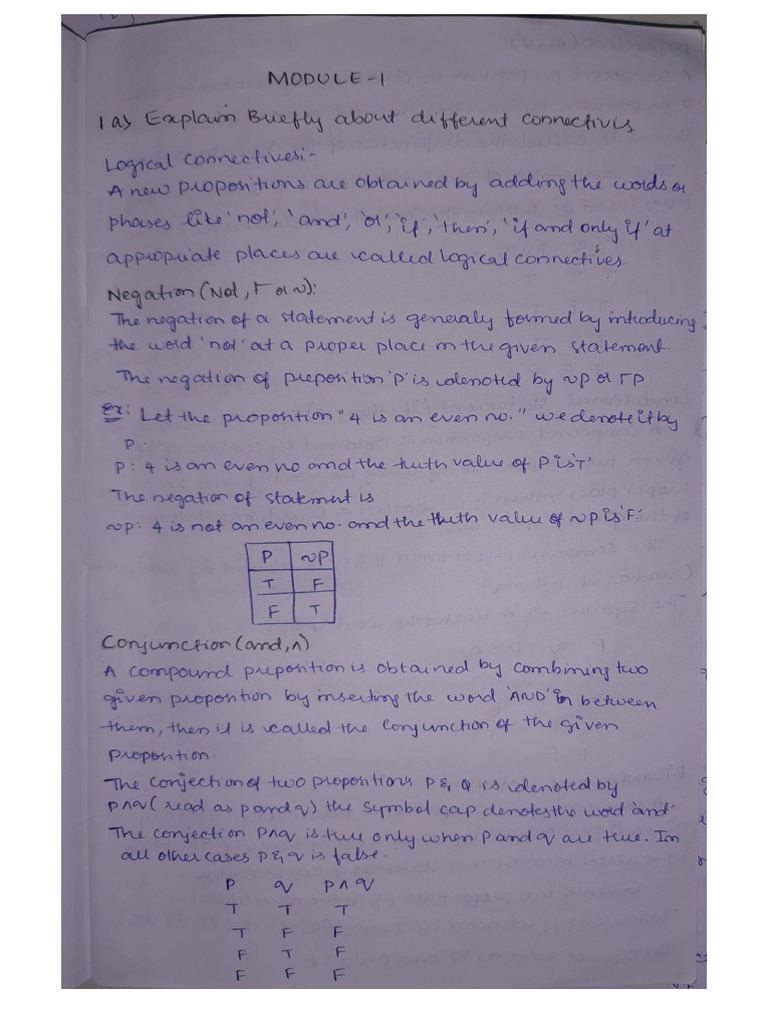 MODULE-1
1 a) Explain Briefly about different connectives
Logical Connectives:-
A new propositions are obtained by adding the words or
phases like 'not', 'and', 'or', 'if', 'then', 'if and only if' at
appropriate places are called logical connectives.
Negation (Not, Γ or ~):
The negation of a statement is generaly formed by introducing
the word 'not' at a proper place in the given statement.
The negation of preposition 'P' is denoted by ~P or ΓP
Ex: Let the proposition "4 is an even no." we denote it by
P.
P: 4 is an even no and the truth value of P is 'T'
The negation of statement is
~P: 4 is not an even no. and the truth value of ~P is 'F'.
P ~P
T F
F T
Conjunction (and, ∧)
A compound preposition is obtained by combining two
given proposition by inserting the word 'AND' in between
them, then it is called the conjunction of the given
proposition.
The conjection of two propositions P & Q is denoted by
P∧q (read as p and q) the symbol cap denotes the word 'and'
The conjection P∧q is true only when P and q are true. In
all other cases P & q is false.
P q P ∧ q
T T T
T F F
F T F
F F F